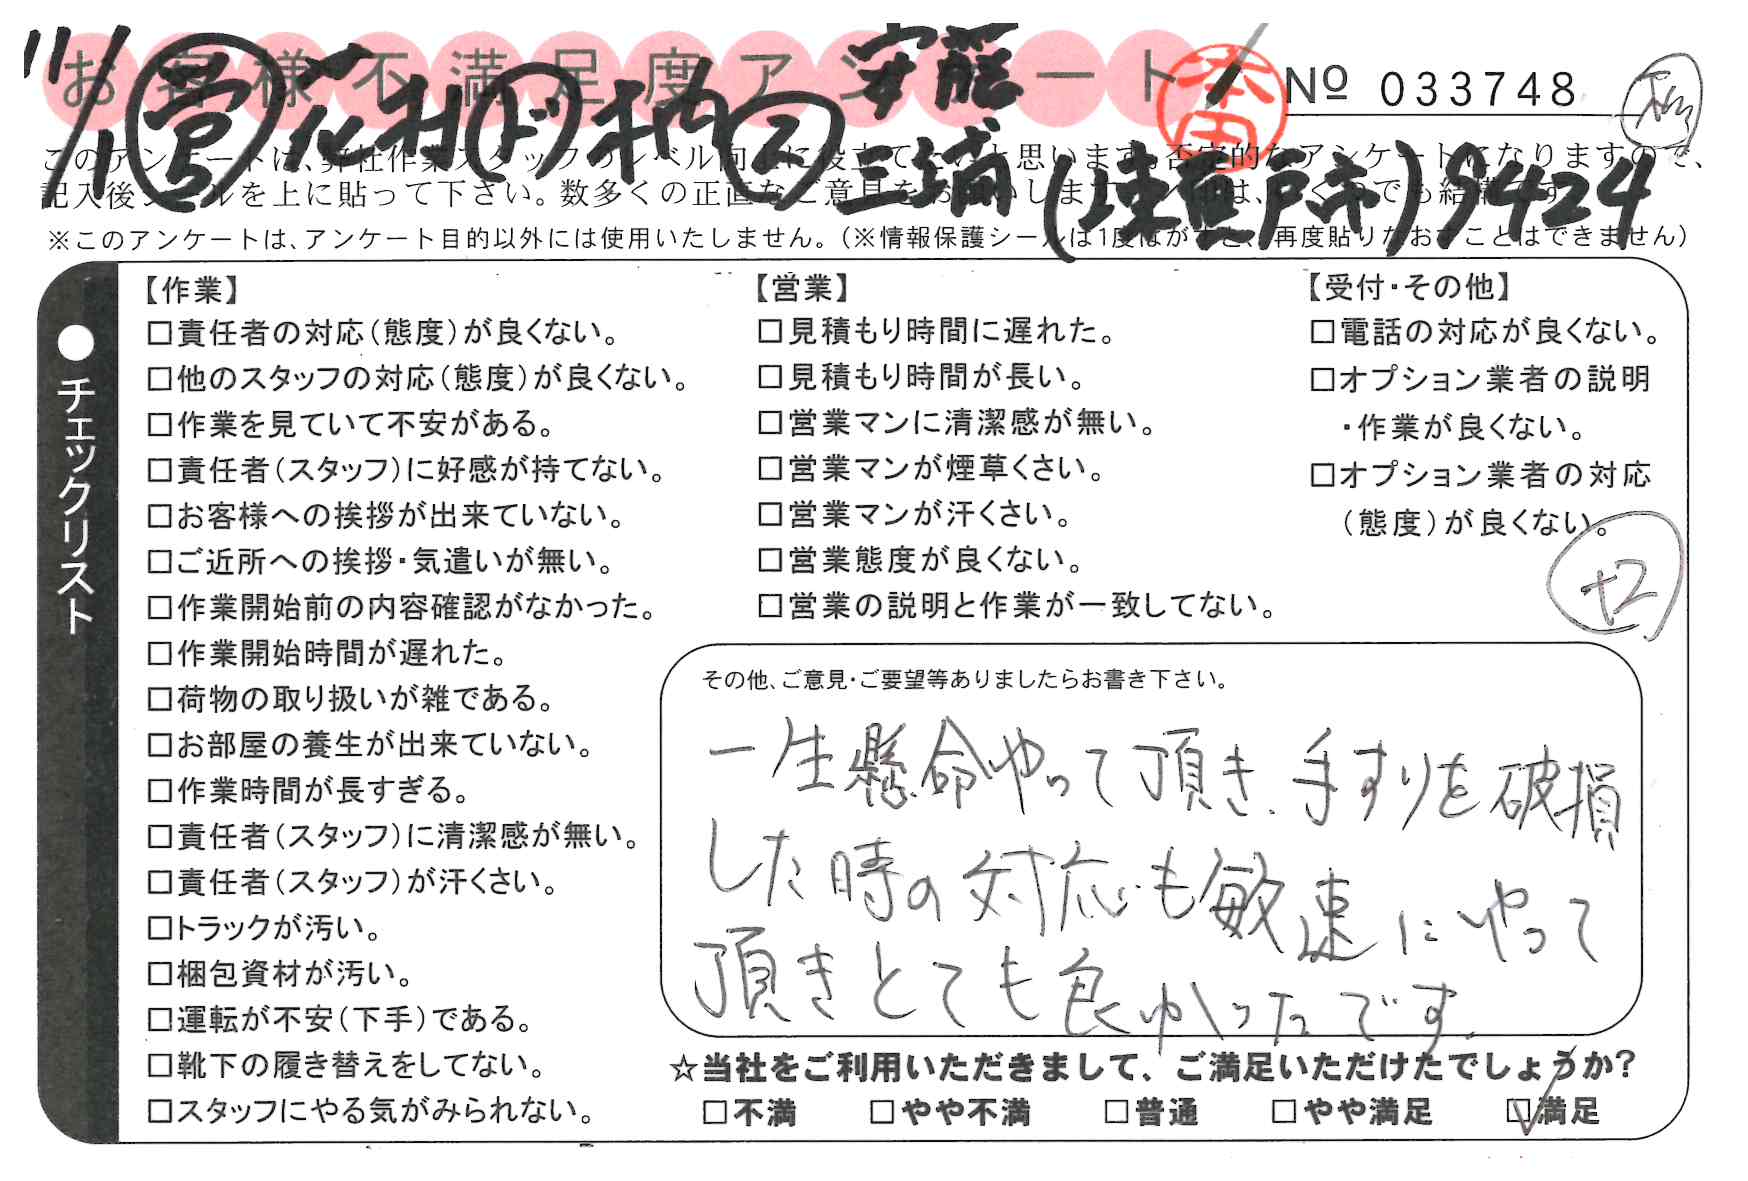 お客様不満足度アンケート
11/1 営 花村 ド 桃 ス 安藤 本田
No 033748
三浦 (東瀬戸市) 9424
このアンケートは、弊社作業スタッフのレベル向上に役立てたいと思います。否定的なアンケートになりますので、
記入後シールを上に貼って下さい。数多くの正直なご意見をお願いします。
※このアンケートは、アンケート目的以外には使用いたしません。(※情報保護シールは1度はがすと、再度貼りなおすことはできません)
●チェックリスト
【作業】
□責任者の対応(態度)が良くない。
□他のスタッフの対応(態度)が良くない。
□作業を見ていて不安がある。
□責任者(スタッフ)に好感が持てない。
□お客様への挨拶が出来ていない。
□ご近所への挨拶・気遣いが無い。
□作業開始前の内容確認がなかった。
□作業開始時間が遅れた。
□荷物の取り扱いが雑である。
□お部屋の養生が出来ていない。
□作業時間が長すぎる。
□責任者(スタッフ)に清潔感が無い。
□責任者(スタッフ)が汗くさい。
□トラックが汚い。
□梱包資材が汚い。
□運転が不安(下手)である。
□靴下の履き替えをしてない。
□スタッフにやる気がみられない。
【営業】
□見積もり時間に遅れた。
□見積もり時間が長い。
□営業マンに清潔感が無い。
□営業マンが煙草くさい。
□営業マンが汗くさい。
□営業態度が良くない。
□営業の説明と作業が一致してない。
【受付・その他】
□電話の対応が良くない。
□オプション業者の説明
・作業が良くない。
□オプション業者の対応
(態度)が良くない。
+2
その他、ご意見・ご要望等ありましたらお書き下さい。
一生懸命やって頂き、手すりを破損
した時の対応も敏速にやって
頂きとても良かったです。
☆当社をご利用いただきまして、ご満足いただけたでしょうか?
□不満 □やや不満 □普通 □やや満足 ☑満足